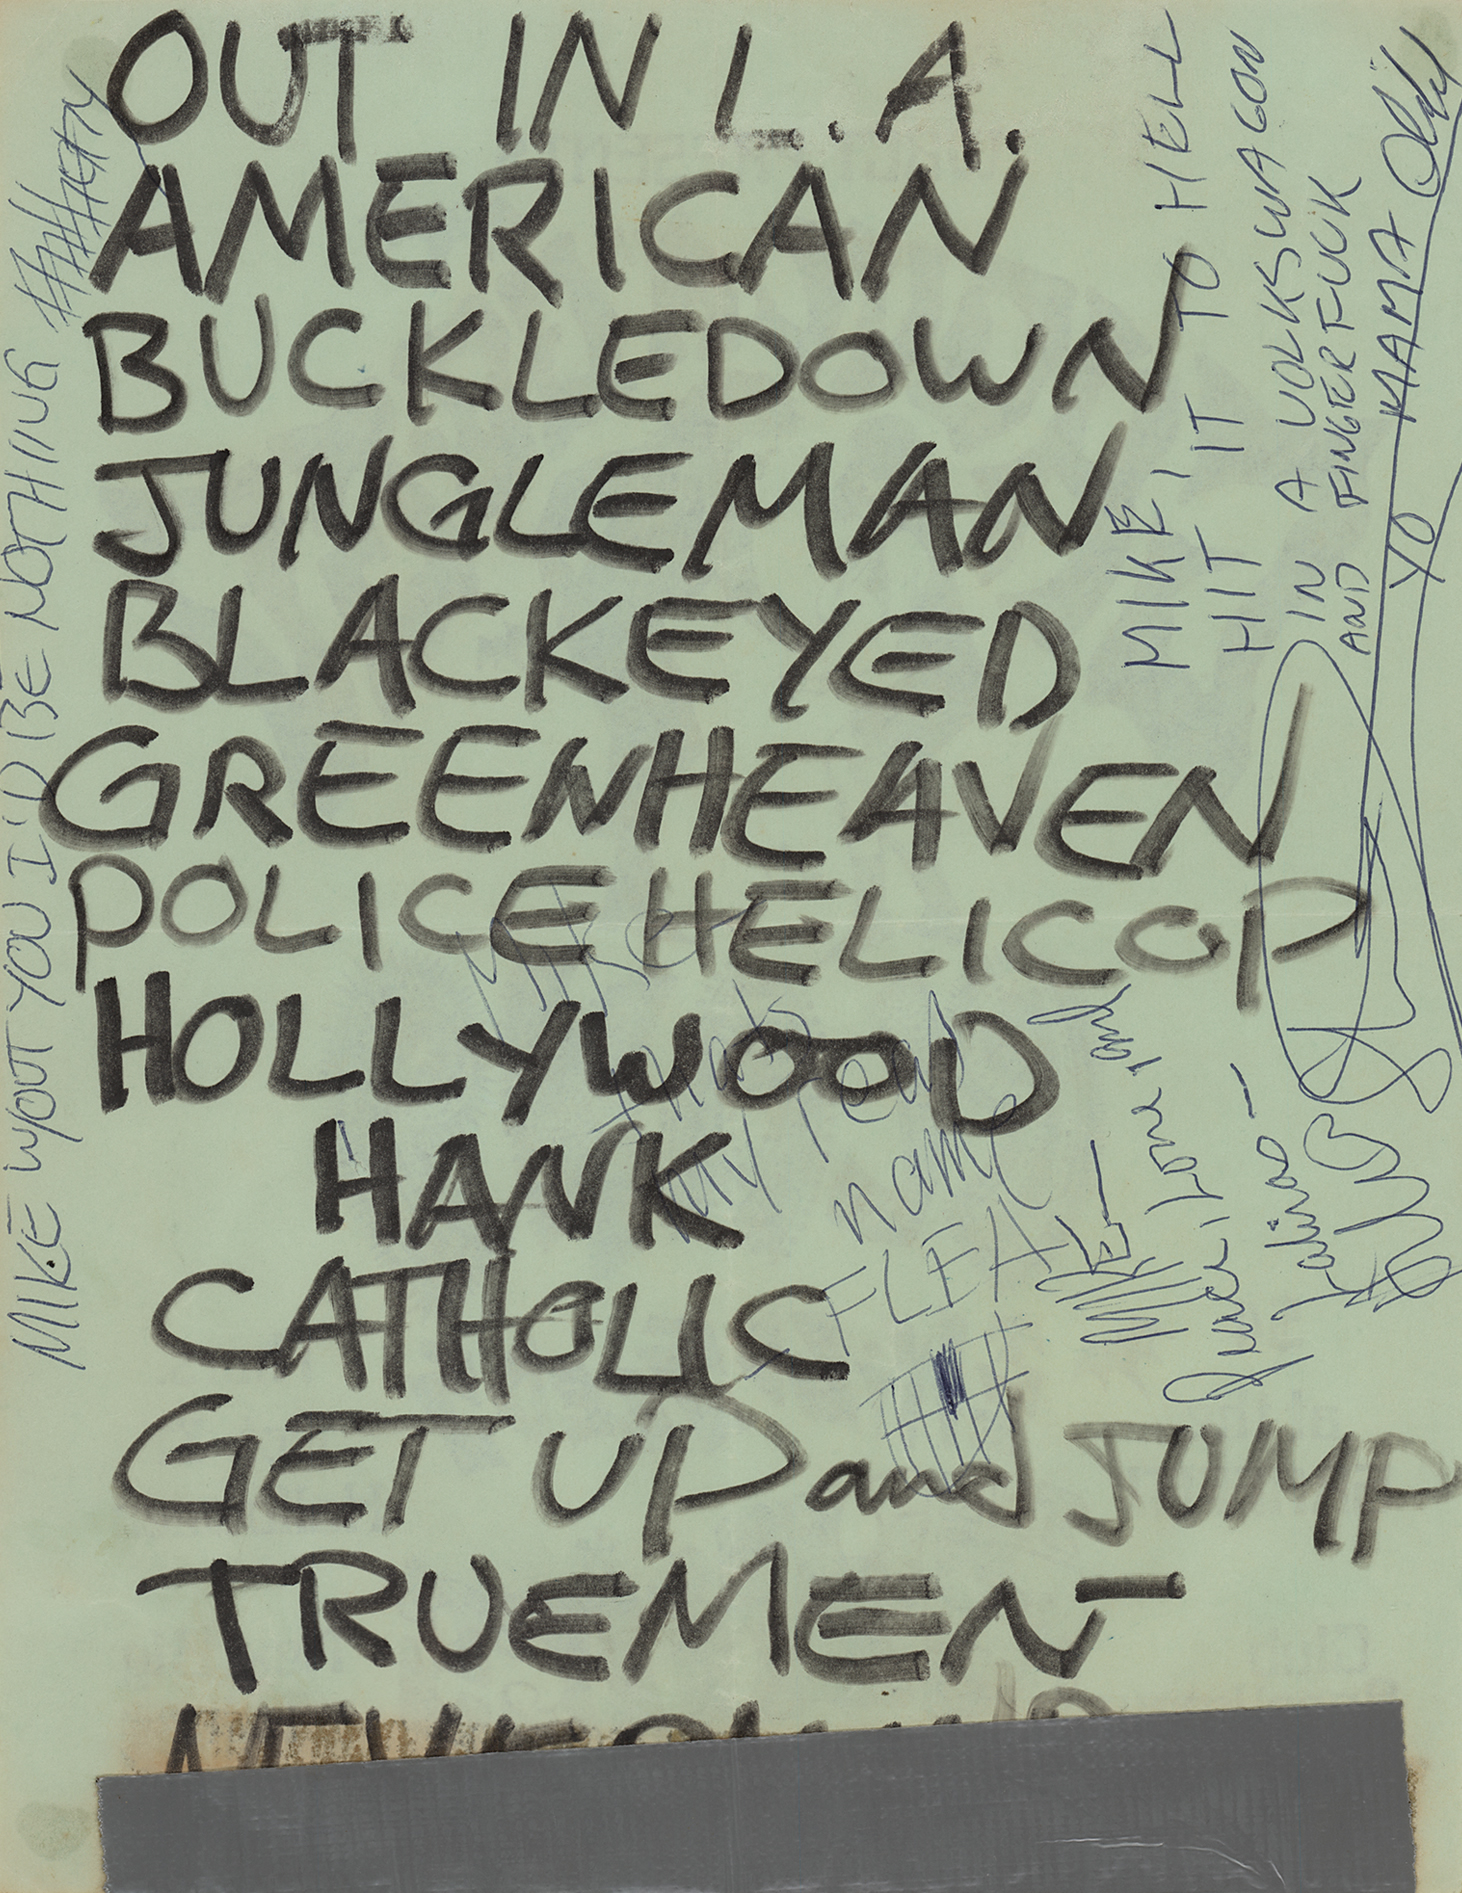 OUT IN L.A.
AMERICAN
BUCKLEDOWN
JUNGLEMAN
BLACKEYED
GREENHEAVEN
POLICEHELICOP
HOLLYWOOD
HANK
CATHOLIC
GET UP and JUMP
TRUEMEN
MIKE W/OUT YOU I'D BE NOTHING
MIKE,
HIT IT TO HELL
IN A VOLKSWAGON
AND FINGERFUCK
YO MAMA
Mike
my real
name
FLEA
MIKE—
love and